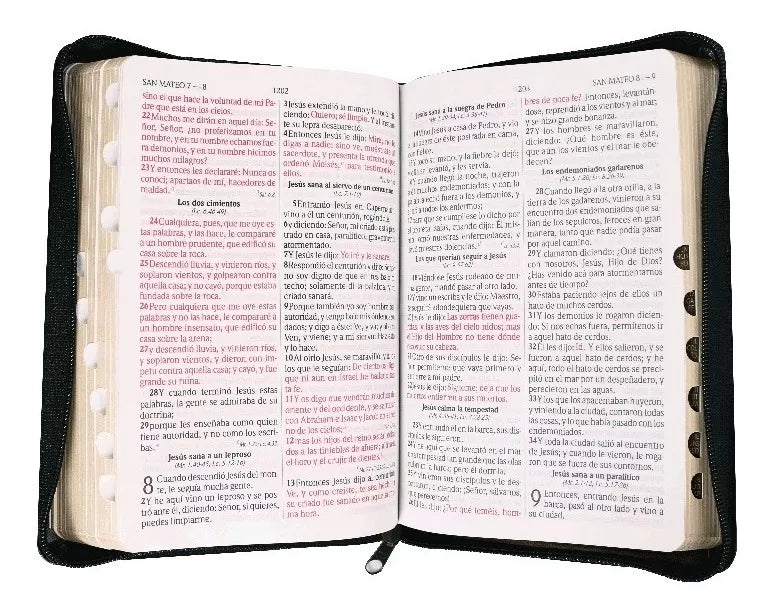 SAN MATEO 7 - - 8
1202
sino el que hace la voluntad de mi Pa-
dre que está en los cielos.
22Muchos me dirán en aquel día: Se-
ñor, Señor, ¿no profetizamos en tu
nombre, y en tu nombre echamos fue-
ra demonios, y en tu nombre hicimos
muchos milagros?
23Y entonces les declararé: Nunca os
conocí; apartaos de mí, hacedores de
maldad.
Los dos cimientos
(Lc. 6.46-49)
24Cualquiera, pues, que me oye es-
tas palabras, y las hace, le compararé
a un hombre prudente, que edificó su
casa sobre la roca.
25Descendió lluvia, y vinieron ríos, y
soplaron vientos, y golpearon contra
aquella casa; y no cayó, porque estaba
fundada sobre la roca.
26Pero cualquiera que me oye estas
palabras y no las hace, le compararé a
un hombre insensato, que edificó su
casa sobre la arena;
27y descendió lluvia, y vinieron ríos,
y soplaron vientos, y dieron con ím-
petu contra aquella casa; y cayó, y fue
grande su ruina.
28Y cuando terminó Jesús estas
palabras, la gente se admiraba de su
doctrina;
29porque les enseñaba como quien
tiene autoridad, y no como los escri-
bas.
Jesús sana a un leproso
(Mr. 1.40-45; Lc. 5.12-16)
8 Cuando descendió Jesús del mon-
te, le seguía mucha gente.
2Y he aquí vino un leproso y se pos-
tró ante él, diciendo: Señor, si quieres,
puedes limpiarme.
3Jesús extendió la mano y le tocó, di-
ciendo: Quiero; sé limpio. Y al instan-
te su lepra desapareció.
4Entonces Jesús le dijo: Mira, no lo
digas a nadie; sino ve, muéstrate al
sacerdote, y presenta la ofrenda que
ordenó Moisés, para testimonio a
ellos.
Jesús sana al siervo de un centurión
(Lc. 7.1-10)
5Entrando Jesús en Capernaum,
vino a él un centurión, rogándole,
6y diciendo: Señor, mi criado está pos-
trado en casa, paralítico, gravemente
atormentado.
7Y Jesús le dijo: Yo iré y le sanaré.
8Respondió el centurión y dijo: Señor,
no soy digno de que entres bajo mi
techo; solamente di la palabra, y mi
criado sanará.
9Porque también yo soy hombre bajo
autoridad, y tengo bajo mis órdenes sol-
dados; y digo a éste: Ve, y va; y al otro:
Ven, y viene; y a mi siervo: Haz esto,
y lo hace.
10Al oírlo Jesús, se maravilló, y dijo a
los que le seguían: De cierto os digo,
que ni aun en Israel he hallado tanta
fe.
11Y os digo que vendrán muchos del
oriente y del occidente, y se sentarán
con Abraham e Isaac y Jacob en el rei-
no de los cielos;
12mas los hijos del reino serán echa-
dos a las tinieblas de afuera; allí será
el lloro y el crujir de dientes.
13 Entonces Jesús dijo al centurión:
Ve, y como creíste, te sea hecho. Y
su criado fue sanado en aquella mis-
ma hora.
203
SAN MATEO 8 - 9
Jesús sana a la suegra de Pedro
14Vino Jesús a casa de Pedro, y vio
a la suegra de éste postrada en cama,
con fiebre.
15Y tocó su mano, y la fiebre la dejó;
y ella se levantó, y les servía.
16Y cuando llegó la noche, trajeron
a él muchos endemoniados; y con la
palabra echó fuera a los demonios, y
sanó a todos los enfermos;
17para que se cumpliese lo dicho por
el profeta Isaías, cuando dijo: Él mis-
mo tomó nuestras enfermedades, y
llevó nuestras dolencias.
Los que querían seguir a Jesús
18Viéndose Jesús rodeado de mu-
cha gente, mandó pasar al otro lado.
19Y vino un escriba y le dijo: Maestro,
te seguiré adondequiera que vayas.
20Jesús le dijo: Las zorras tienen gua-
ridas, y las aves del cielo nidos; mas
el Hijo del Hombre no tiene dónde
recostar su cabeza.
21Otro de sus discípulos le dijo: Se-
ñor, permíteme que vaya primero y
entierre a mi padre.
22Jesús le dijo: Sígueme; deja que los
muertos entierren a sus muertos.
Jesús calma la tempestad
23Y entrando él en la barca, sus dis-
cípulos le siguieron.
24Y he aquí que se levantó en el mar
una tempestad tan grande que las olas
cubrían la barca; pero él dormía.
25Y vinieron sus discípulos y le des-
pertaron, diciendo: ¡Señor, sálvanos,
que perecemos!
26Él les dijo: ¿Por qué teméis, hom-
bres de poca fe? Entonces, levantán-
dose, reprendió a los vientos y al mar;
y se hizo grande bonanza.
27Y los hombres se maravillaron,
diciendo: ¿Qué hombre es éste,
que aun los vientos y el mar le obe-
decen?
Los endemoniados gadarenos
28Cuando llegó a la otra orilla, a la
tierra de los gadarenos, vinieron a su
encuentro dos endemoniados que sa-
lían de los sepulcros, feroces en gran
manera, tanto que nadie podía pasar
por aquel camino.
29Y clamaron diciendo: ¿Qué tienes
con nosotros, Jesús, Hijo de Dios?
¿Has venido acá para atormentarnos
antes de tiempo?
30Estaba paciendo lejos de ellos un
hato de muchos cerdos.
31Y los demonios le rogaron dicien-
do: Si nos echas fuera, permítenos ir
a aquel hato de cerdos.
32Él les dijo: Id. Y ellos salieron, y se
fueron a aquel hato de cerdos; y he
aquí, todo el hato de cerdos se preci-
pitó en el mar por un despeñadero, y
perecieron en las aguas.
33Y los que los apacentaban huyeron,
y viniendo a la ciudad, contaron todas
las cosas, y lo que había pasado con los
endemoniados.
34Y toda la ciudad salió al encuentro
de Jesús; y cuando le vieron, le roga-
ron que se fuera de sus contornos.
Jesús sana a un paralítico
(Mr. 2.1-12; Lc. 5.17-26)
9 Entonces, entrando Jesús en la
barca, pasó al otro lado y vino a
su ciudad.